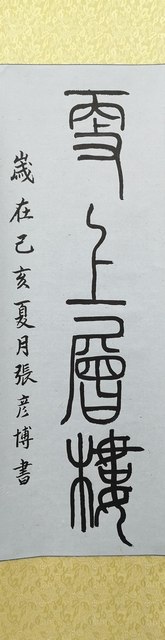 更上層樓
歲在己亥夏月張彦博書